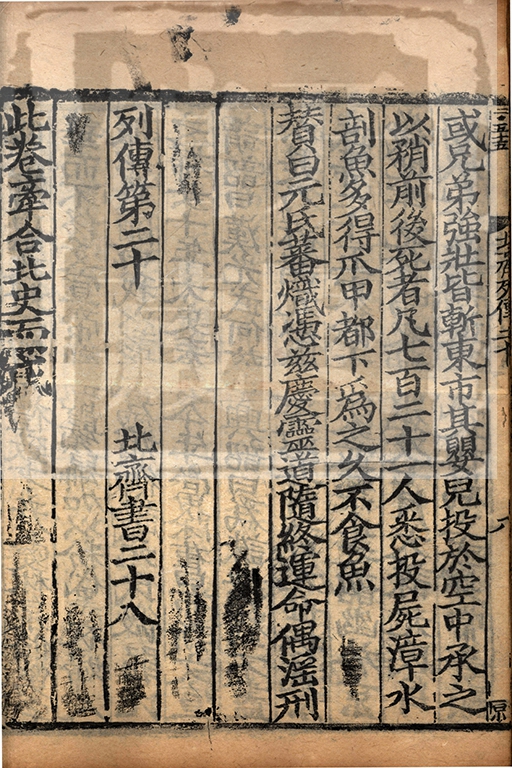 北齊列傳二十
八
或兄弟強壯皆斬東市其嬰兒投於空中承之
以矟前後死者凡七百二十一人悉投屍漳水
剖魚多得爪甲都下爲之久不食魚
賛曰元氏蕃熾憑兹慶靈道隨終運命偶淫刑
列傳第二十 北齊書二十八
此卷牽合北史而